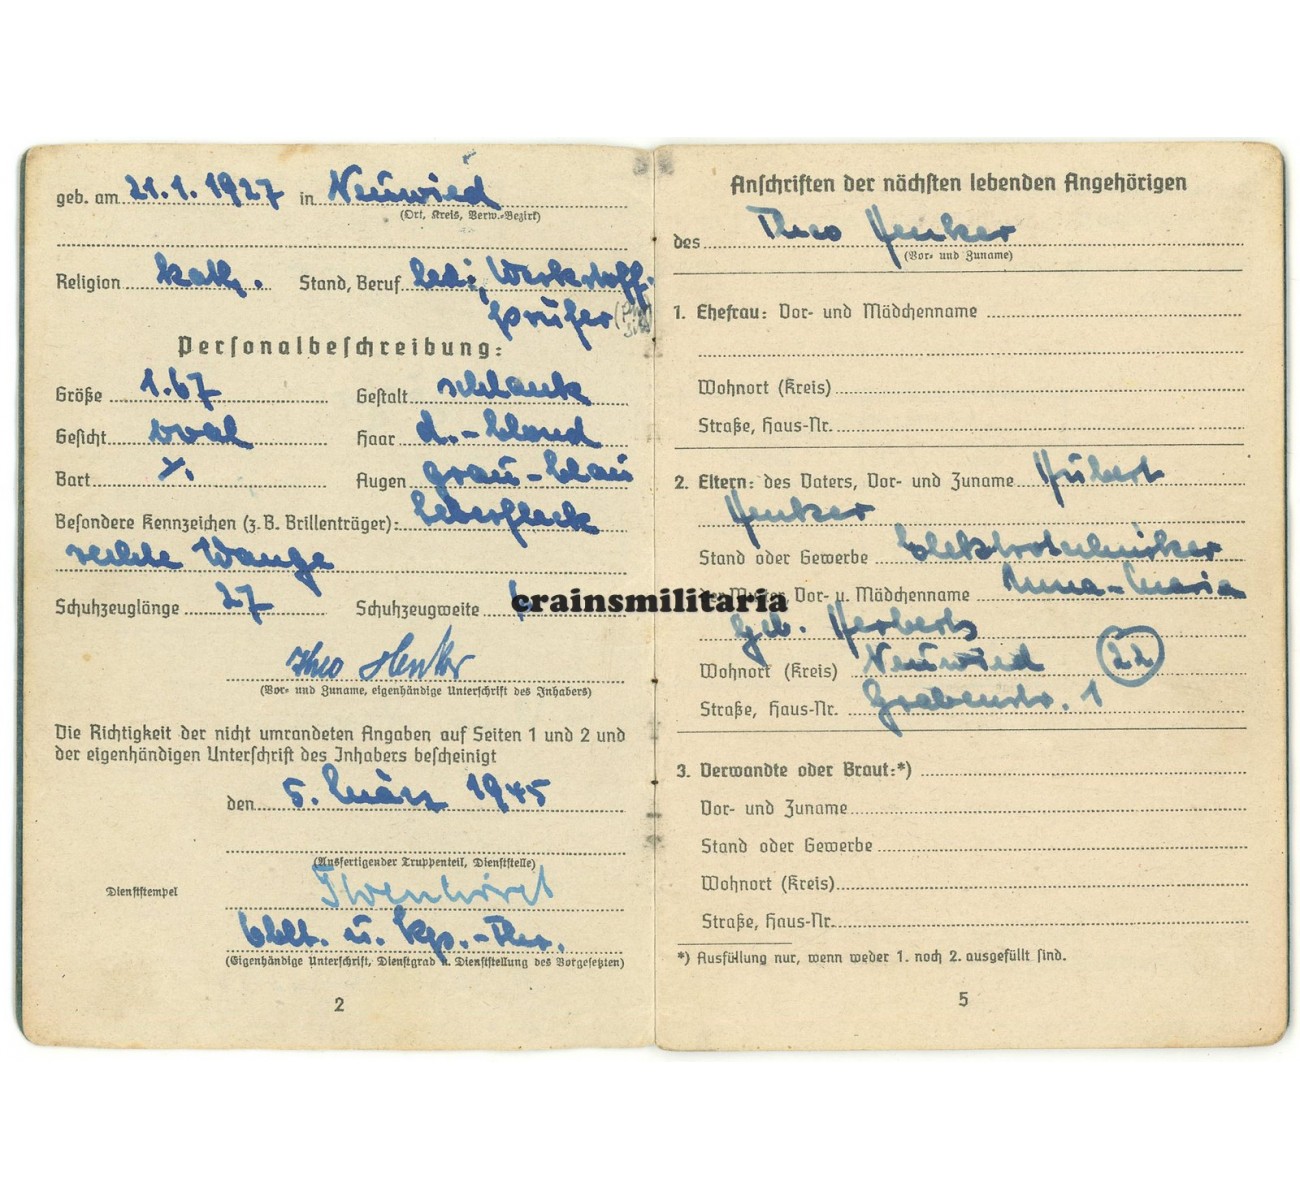 geb. am 21.1.1927 in Neuwied
(Ort, Kreis, Verw.-Bezirk)
Religion kath. Stand, Beruf led., Werkstoff-
prüfer
Personalbeschreibung:
Größe 1.67 Gestalt schlank
Gesicht oval Haar d.-blond
Bart ./. Augen grau-blau
Besondere Kennzeichen (z. B. Brillenträger): Leberfleck
rechte Wange
Schuhzeuglänge 27 Schuhzeugweite
Theo Henker
(Vor- und Zuname, eigenhändige Unterschrift des Inhabers)
Die Richtigkeit der nicht umrandeten Angaben auf Seiten 1 und 2 und
der eigenhändigen Unterschrift des Inhabers bescheinigt
den 5. März 1945
(Ausfertigender Truppenteil, Dienststelle)
Dienststempel
Oblt. u. Kp.-
(Eigenhändige Unterschrift, Dienstgrad u. Dienststellung des Vorgesetzten)
2
Anschriften der nächsten lebenden Angehörigen
des Theo Henker
(Vor- und Zuname)
1. Ehefrau: Vor- und Mädchenname
Wohnort (Kreis)
Straße, Haus-Nr.
2. Eltern: des Vaters, Vor- und Zuname Hubert
Henker
Stand oder Gewerbe Elektrotechniker
der Mutter, Vor- u. Mädchenname Anna-Maria
geb. Herbertz
Wohnort (Kreis) Neuwied (22)
Straße, Haus-Nr. Grabenstr. 1
3. Verwandte oder Braut:*)
Vor- und Zuname
Stand oder Gewerbe
Wohnort (Kreis)
Straße, Haus-Nr.
*) Ausfüllung nur, wenn weder 1. noch 2. ausgefüllt sind.
5
crainsmilitaria